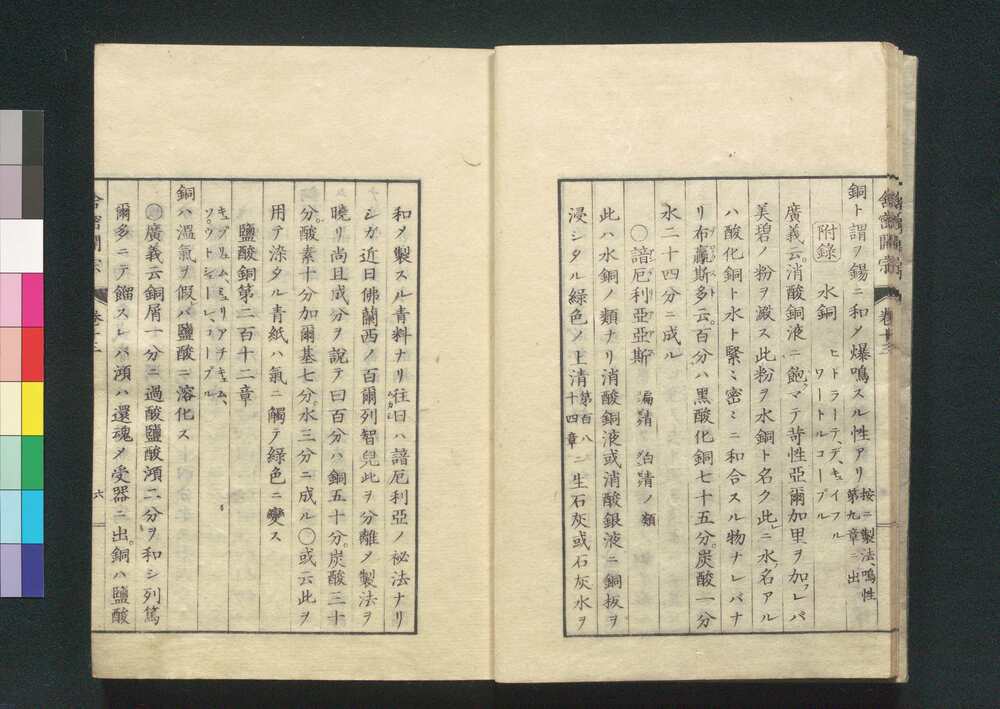 銅ト謂ヲ錫ニ和メ爆鳴スル性アリ 按ニ製法、鳴性
第九章ニ出
附錄 水銅 ヒトラーテ、デ、キュイフル
ワートルコープル
廣義云。消酸銅液ニ飽マテ苛性亞爾加里ヲ加レバ
美碧ノ粉ヲ澱ス此粉ヲ水銅ト名ク此ニ水名アル
ハ酸化銅ト水ト緊ミ密ミニ和合スル物ナレバナ
リ布羸斯多云。百分ハ黑酸化銅七十五分。炭酸一分
水二十四分ニ成ル
〇諳厄利亞亞斯
此ハ水銅ノ類ナリ消酸銅液或消酸銀液ニ銅扳ヲ
浸シタル綠色ノ上清 第百八
十四章 ニ生石灰或石灰水ヲ
和メ製スル青料ナリ往日ハ諳厄利亞ノ祕法ナリ
シガ近日佛蘭西ノ百爾列智兒此ヲ分離メ製法ヲ
曉リ尚且成分ヲ說テ曰百分ハ銅五十分。炭酸三十
分。酸素十分加爾基七分。水三分ニ成ル〇或云此ヲ
用テ染タル青紙ハ氣ニ觸テ綠色ニ變ス
鹽酸銅第二百十二章
キュプリュム、ミュリアチキュム、
ソウトシューレ、コープル
銅ハ溫氣ヲ假バ鹽酸ニ溶化ス
廣義云銅屑一分ニ過酸鹽酸澒二分ヲ和シ列篤
爾多ニテ餾スレバ澒ハ還魂メ受器ニ出。銅ハ鹽酸
舍密開宗 卷十三
六